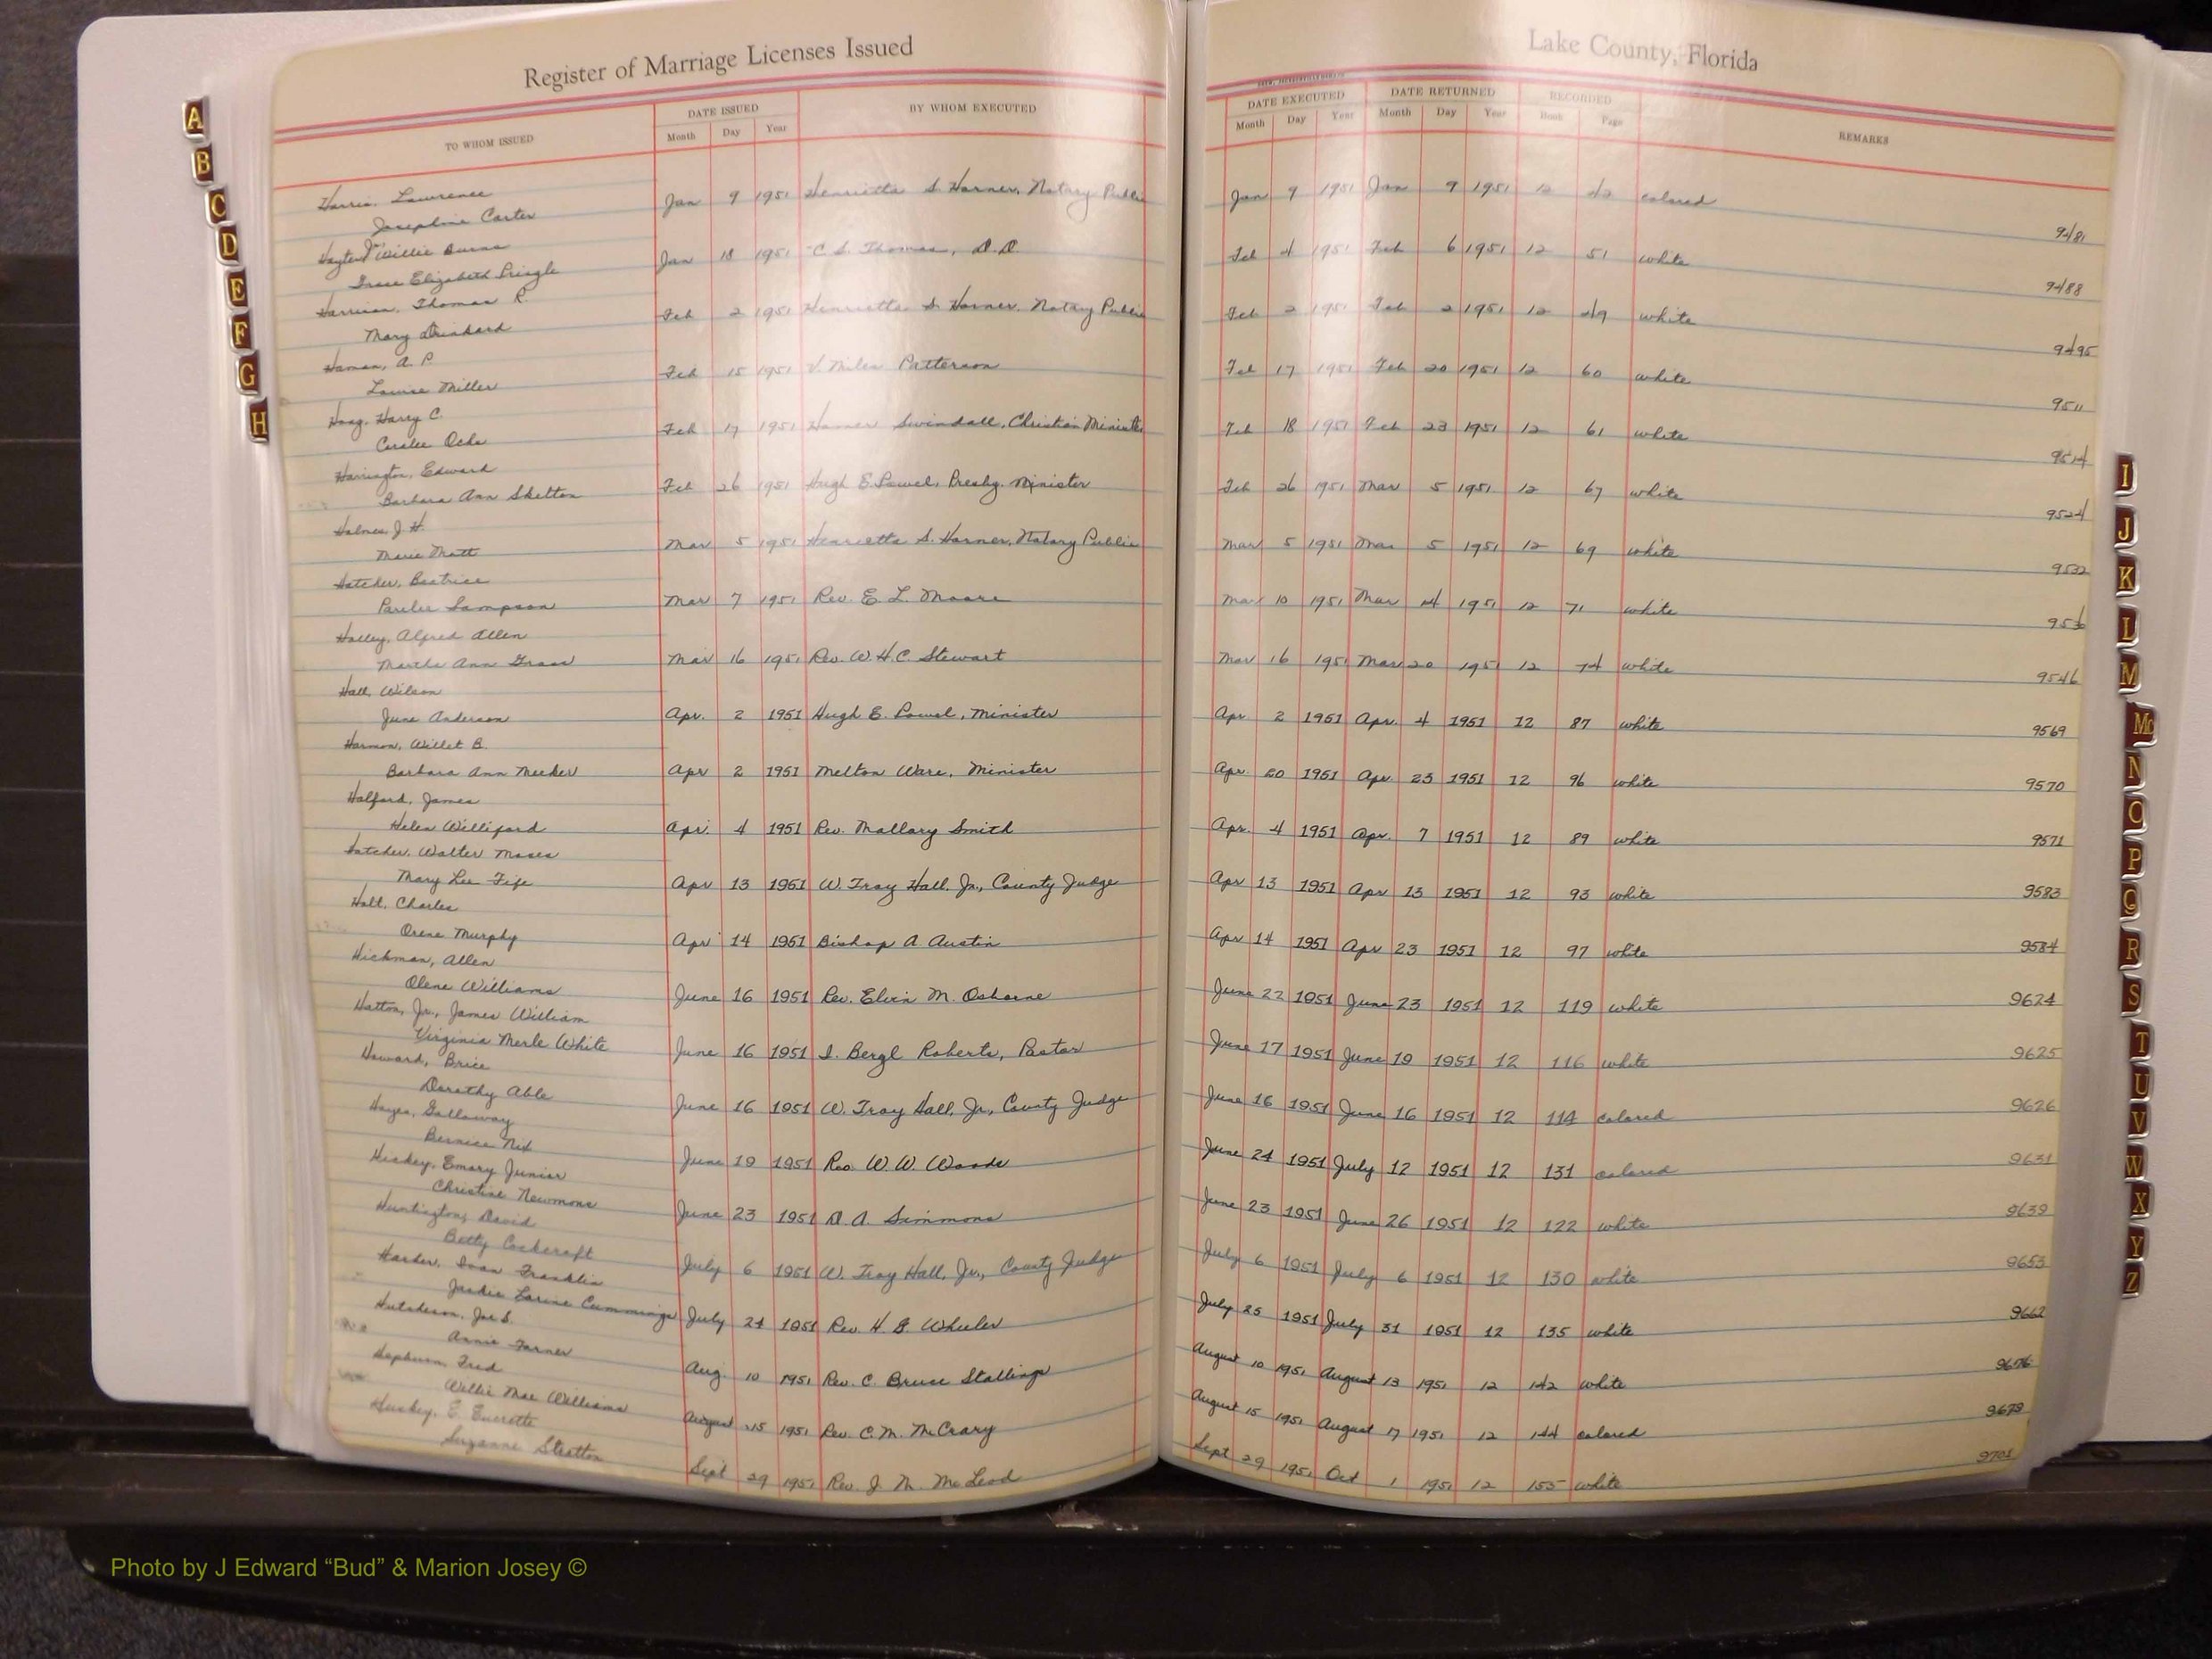 Register of Marriage Licenses Issued
Lake County, Florida
TO WHOM ISSUED
DATE ISSUED
Month Day Year
BY WHOM EXECUTED
DATE EXECUTED
Month Day Year
DATE RETURNED
Month Day Year
RECORDED
Book Page
REMARKS
Harris, Lawrence
Josephine Carter
Jan 9 1951 Henrietta S. Harner, Notary Public Jan 9 1951 Jan 9 1951 12 42 colored
9481
Willie Burns
Elizabeth Pringle
Jan 18 1951 C. S. Thomas, D.D. Feb 4 1951 Feb 6 1951 12 51 white
9488
Harrison, Thomas R.
Mary Drinkard
Feb 2 1951 Henrietta S. Harner, Notary Public Feb 2 1951 Feb 2 1951 12 49 white
9495
Haman, A. P.
Louise Miller
Feb 15 1951 V. Miles Patterson Feb 17 1951 Feb 20 1951 12 60 white
9511
Haag, Harry C.
Coralee
Feb 17 1951 Homer Swindall, Christian Minister Feb 18 1951 Feb 23 1951 12 61 white
9514
Harrington, Edward
Barbara Ann Skelton
Feb 26 1951 Hugh E. Powel, Presby. Minister Feb 26 1951 Mar 5 1951 12 67 white
9524
Holmes, J. H.
Marie Mott
Mar 5 1951 Henrietta S. Harner, Notary Public Mar 5 1951 Mar 5 1951 12 69 white
9532
Hatcher, Beatrice
Sampson
Mar 7 1951 Rev. E. L. Moore Mar 10 1951 Mar 14 1951 12 71 white
9536
Holley, Alfred Allen
Martha Ann
Mar 16 1951 Rev. W. H. C. Stewart Mar 16 1951 Mar 20 1951 12 74 white
9546
Hall, Wilson
June Anderson
Apr. 2 1951 Hugh E. Powel, Minister Apr 2 1951 Apr. 4 1951 12 87 white
9569
Harmon, Willet B.
Barbara Ann Meeker
Apr 2 1951 Melton Ware, Minister Apr. 20 1951 Apr. 23 1951 12 96 white
9570
Halford, James
Helen Williford
Apr. 4 1951 Rev. Mallory Smith Apr. 4 1951 Apr. 7 1951 12 89 white
9571
Hatcher, Walter Moses
Mary Lee Fife
Apr 13 1951 W. Troy Hall, Jr., County Judge Apr 13 1951 Apr 13 1951 12 93 white
9583
Holt, Charles
Orene Murphy
Apr 14 1951 Bishop A Austin Apr 14 1951 Apr 23 1951 12 97 white
9584
Hickman, Allen
Olene Williams
June 16 1951 Rev. Elvin M. Osborne June 22 1951 June 23 1951 12 119 white
9624
Hatton, Jr., James William
Virginia Merle White
June 16 1951 I. Bergl Roberts, Pastor June 17 1951 June 19 1951 12 116 white
9625
Howard, Brice
Dorothy Able
June 16 1951 W. Troy Hall, Jr., County Judge June 16 1951 June 16 1951 12 114 colored
9626
Hayes, Galloway
Bernice Nix
June 19 1951 Rev. W. W. Woods June 24 1951 July 12 1951 12 131 colored
9631
Hickey, Emory Junior
Christine Newmons
June 23 1951 D. A. Simmons June 23 1951 June 26 1951 12 122 white
9639
Huntington, David
Betty Cockcroft
July 6 1951 W. Troy Hall, Jr., County Judge July 6 1951 July 6 1951 12 130 white
9653
Harder, Ivan Franklin
Jackie Larine Cummings
July 24 1951 Rev. H B Wheeler July 25 1951 July 31 1951 12 135 white
9662
Hutcheson, Joe S.
Annie Farner
Aug. 10 1951 Rev. C. Bruce Stallings August 10 1951 August 13 1951 12 142 white
9676
Hepburn, Fred
Willie Mae Williams
August 15 1951 Rev. C. M. McCrary August 15 1951 August 17 1951 12 144 colored
9679
Huskey, E. Everette
Suzanne Stratton
Sept 29 1951 Rev. J. N. McLeod Sept 29 1951 Oct 1 1951 12 155 white
9701
A
B
C
D
E
F
G
H
I
J
K
L
M
Mc
N
O
P
Q
R
S
T
U
V
W
X
Y
Z
Photo by J Edward “Bud” & Marion Josey ©